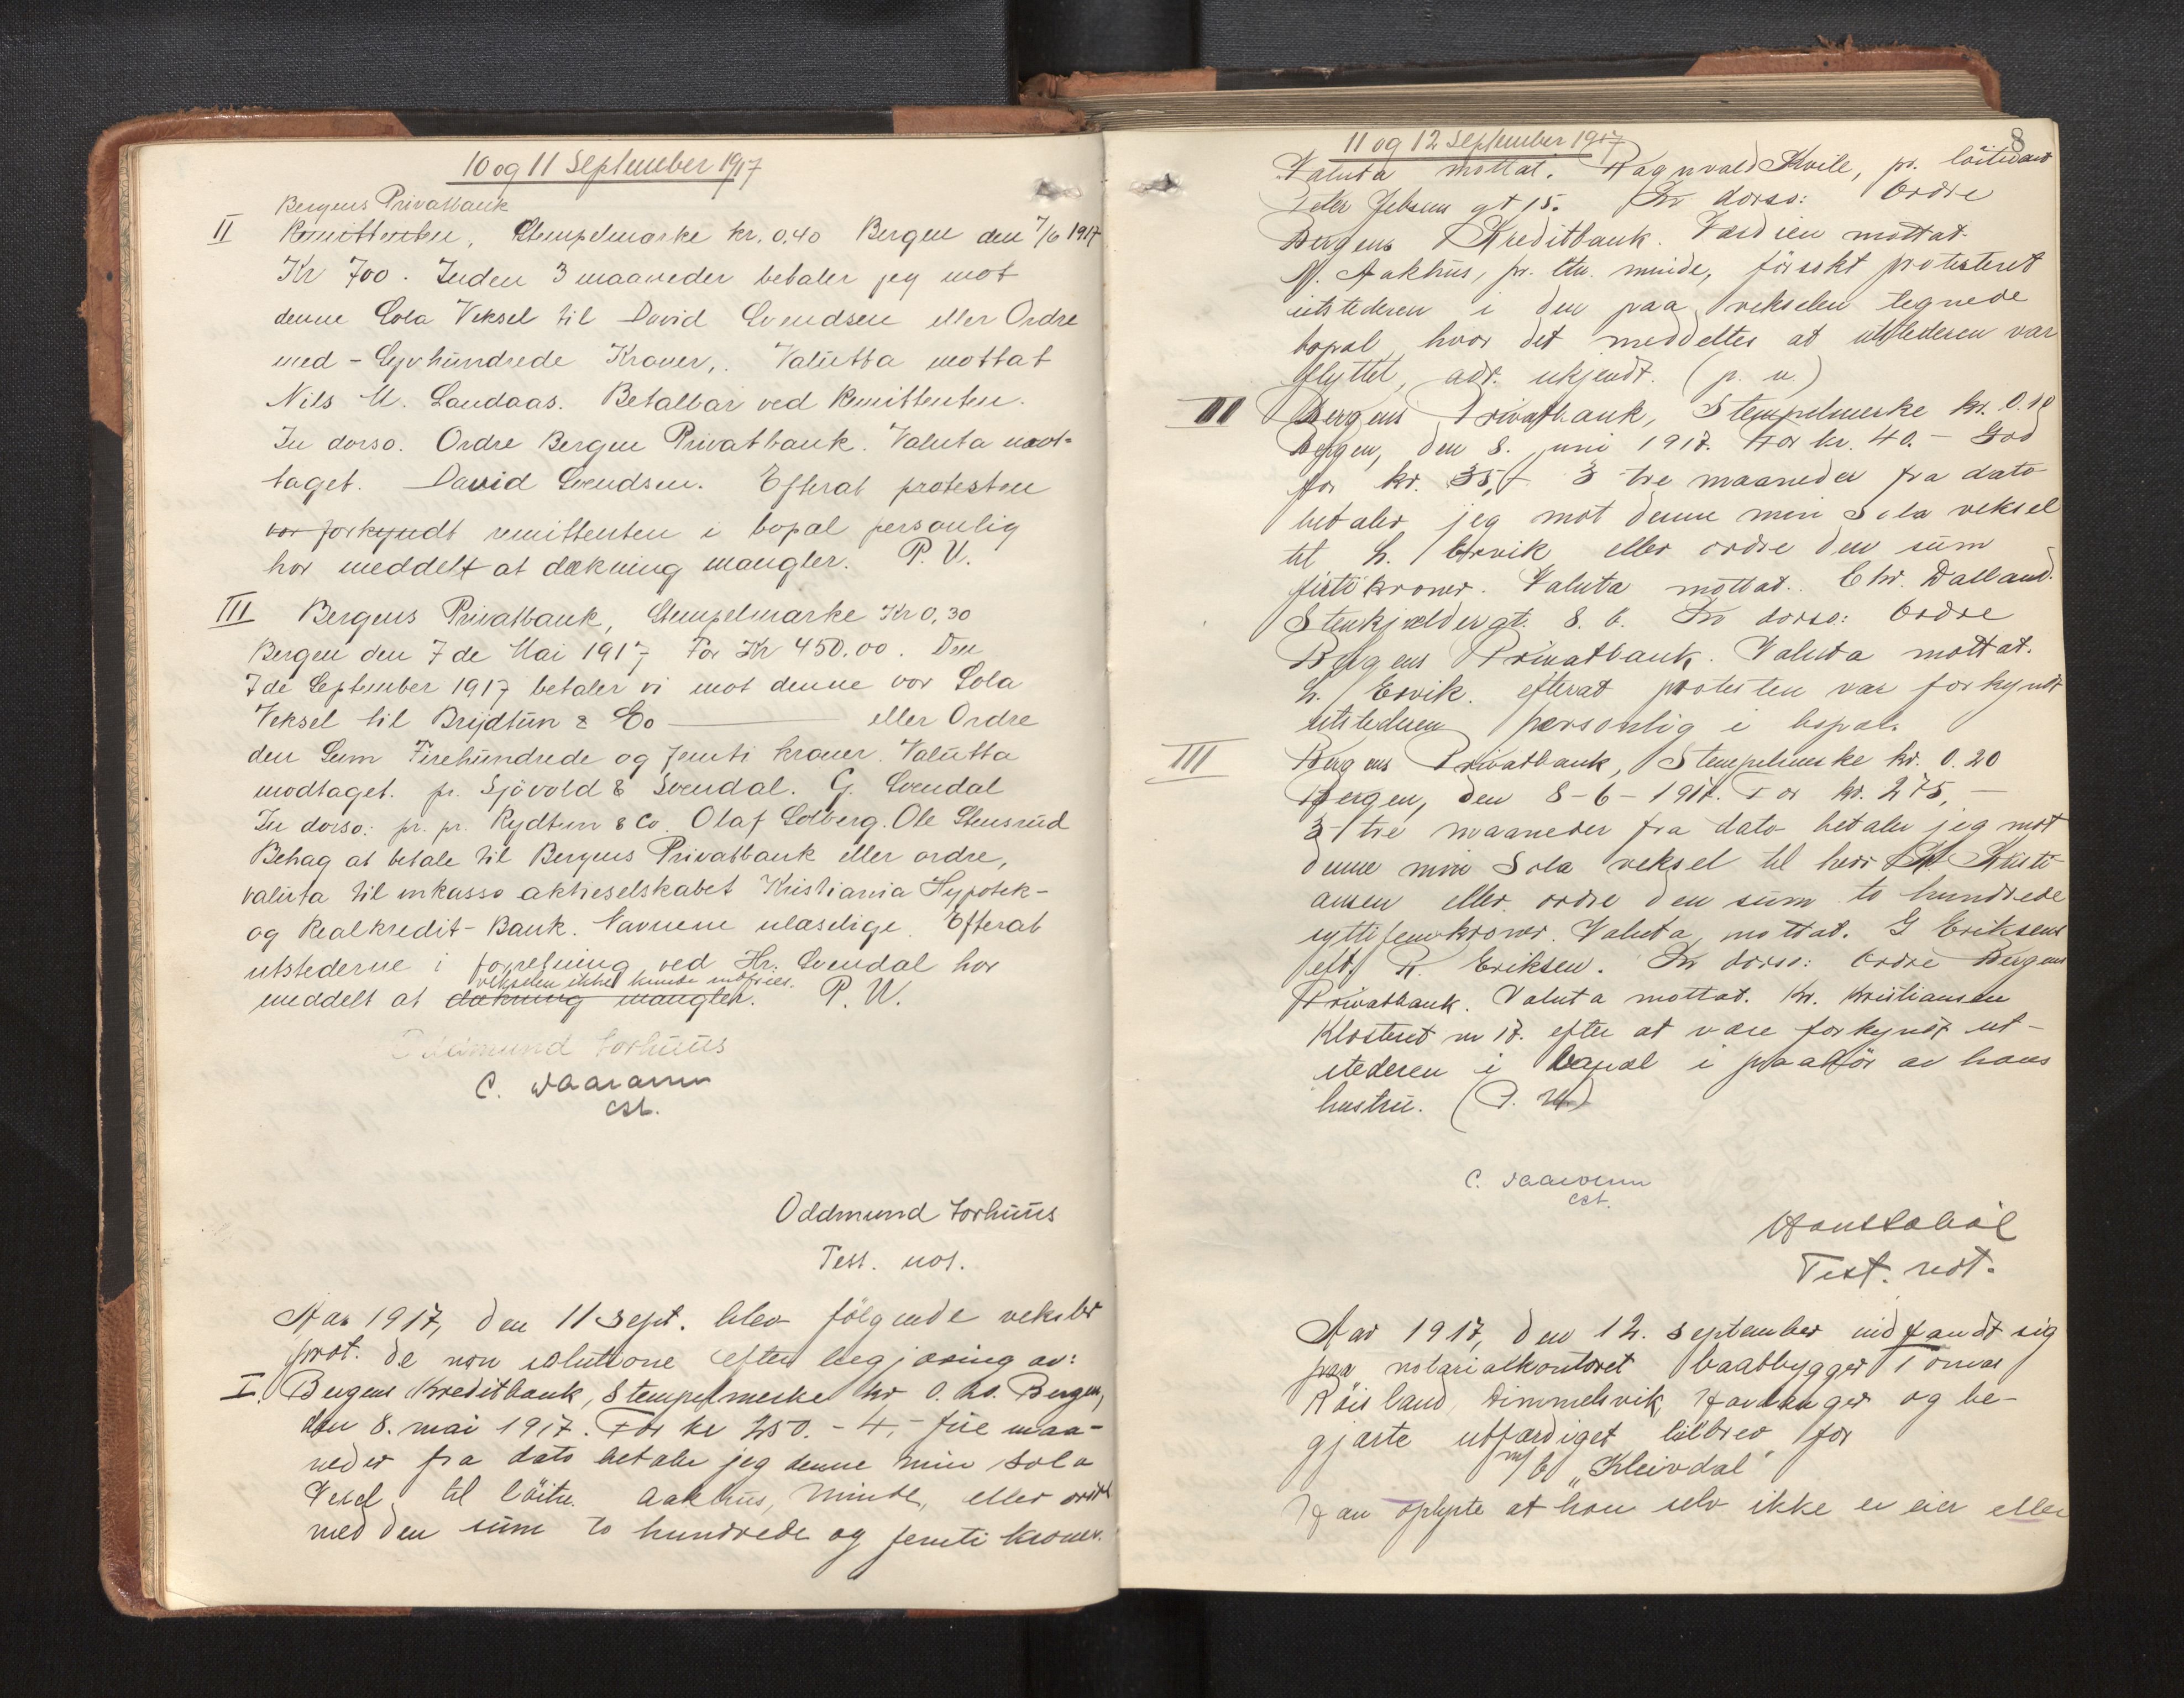 10 og 11 September 1917
Bergens Privatbank
II Remittenten, Stempelmærke kr. 0,40 Bergen den 7/6 1917
Kr 700. Inden 3 maaneder betaler jeg mot
denne Sola Veksel til David Svendsen eller Ordre
med - Syvhundrede Kroner,. Valutta mottat
Nils M. Landaas. Betalbar ved Remittenten.
In dorso. Ordre Bergen Privatbank. Valuta mot-
taget. David Svendsen. Efterat protesten
var forkyndt remittenten i bopæl personlig
har meddelt at dækning mangler. P. U.
III Bergens Privatbank, Stempelmærke Kr 0,30
Bergen den 7de Mai 1917 For Kr 450.00. Den
7de September 1917 betaler vi mot denne vor Sola
Veksel til Brijdtun & Co eller Ordre
den Sum Firehundrede og femti kroner. Valutta
modtaget. pr. Sjövold & Svendal. G. Svendal
In dorso: pr. pr. Rydtun & Co. Olaf Solberg. Ole Stensrud
Behag at betale til Bergens Privatbank eller ordre,
valuta til inkasso aktieselskabet Kristiania Hypotek-
og Realkredit-Bank. Navnene ulæselige. Efterat
utstederne i forretning ved Hr. Svendal har
vekselen ikke kunde indfries.
meddelt at dækning mangler. P. U.
Oddmund Torhuus
C.
cst.
Oddmund Torhuus
Test. not.
Aar 1917, den 11 sept. blev følgende veksler
prot. de non solutione efter begjæring av:
I. Bergens Kreditbank, Stempelmerke kr 0. 20. Bergen,
den 8. mai 1917. For kr 250. - 4,- fire maa-
neder fra dato betaler jeg denne min Sola
Vexel til löitn. Aakhus, Minde, eller ordre
med den sum to hundrede og femti kroner.
11 og 12 September 1917
8
Valuta mottat. Ragnvald Kvile, pr. löitnant
Peter Jebsens gt 15. In dorso: Ordre
Bergens Kreditbank. Værdien mottat
N. Aakhus, pr. ltn. minde, försøkt protesteret
utstederen i den paa vekselen tegnede
bopæl, hvor det meddeltes at utstederen var
flyttet, adr. ukjendt. (p. u.)
III Bergens Privatbank, Stempelmerke kr. 0.10
Bergen, den 8. juni 1917. For kr. 40.- God
for kr. 35,- 3 tre maaneder fra dato
betaler jeg mot denne min Sola veksel
til L. Ervik eller ordre den sum
firti kroner. Valuta mottat. Chr. Dalland.
Stenkjeldergt. 8. b. In dorso: Ordre
Bergens Privatbank. Valuta mottat.
L. Ervik. efterat protesten var forkyndt
utstederen personlig i bopæl.
III Bergens Privatbank, Stempelmerke kr. 0.20
Bergen, den 8-6-1917. For kr. 275,-
3 - tre maaneder fra dato betaler jeg mot
denne min Sola veksel til herr Kr. Kristi
ansen eller ordre den sum to hundrede
sytti fem kroner. Valuta mottat. G Eriksens
eft. R. Eriksen. In dorso: Ordre Bergens
Privatbank. Valuta mottat. Kr. Kristiansen
Klosteret nr 17. efter at være forkyndt ut-
stederen i bopæl i paahör av hans
hustru. (P. U.)
C.
cst.
Test. not.
Aar 1917, den 12. september indfandt sig
paa notarialkontoret baatbygger Tomas
Röisland, Dimmelsvik, Hardanger og be-
gjærte utfærdiget bilbrev for
m/b "Kleivdal"
Han oplyste at han selv ikke er eier eller